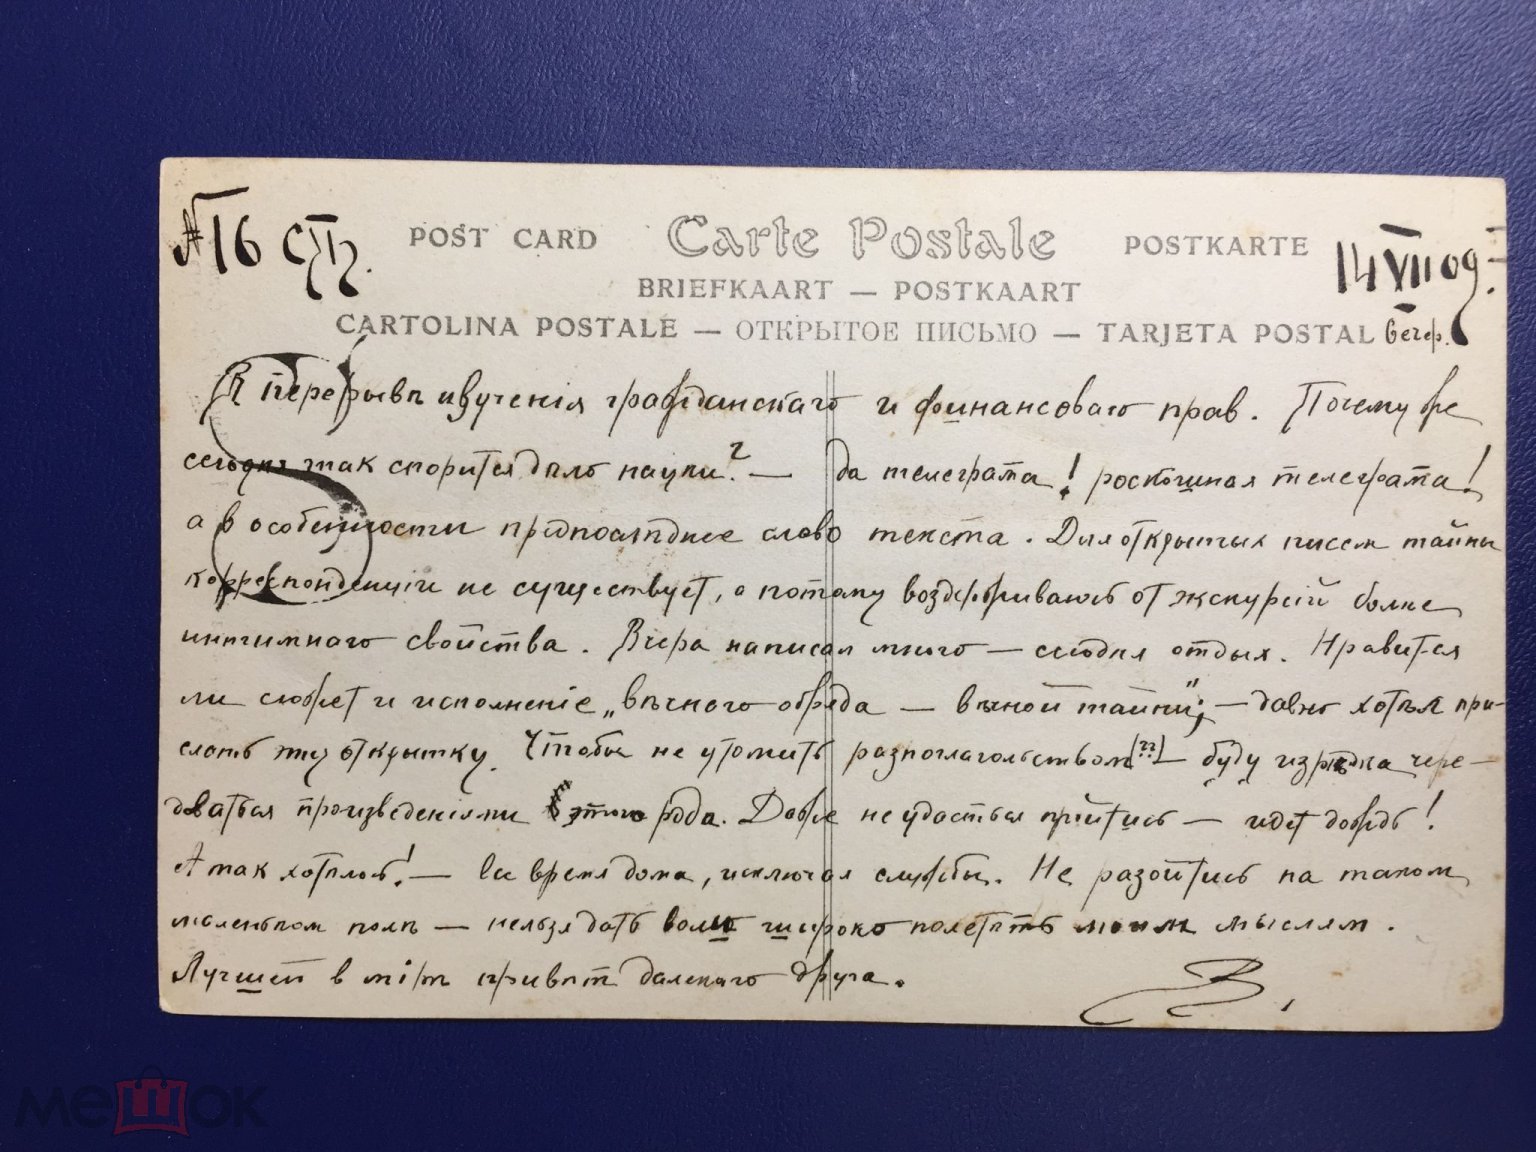 №16 СПб.
POST CARD Carte Postale POSTKARTE
14 VII 09.
BRIEFKAART — POSTKAART
CARTOLINA POSTALE — ОТКРЫТОЕ ПИСЬМО — TARJETA POSTAL
вечер.
В перерывѣ изученія гражданскаго и финансоваго прав. Почему же
сегодня так спорится дѣло науки? — да телеграма! роскошная телеграма!
а в особенности предпослѣднее слово текста. Для открытых писем тайны
корреспонденціи не существует, а потому воздерживаюсь от экскурсій болѣе
интимнаго свойства. Вчера написал много — сегодня отдых. Нравится
ли сюжет и исполненіе „вѣчнаго обряда — вѣчной тайны"; — давно хотѣл при-
слать эту открытку. Чтобы не утомить разноглагольством(??) — буду изрѣдка чере-
доваться произведеніями этого рода. Даже не удасться пройтись — идет дождь!
А так хотѣлось! — все время дома, исключая службы. Не разойтись на таком
маленьком полѣ — нельзя дать волю широко полетѣть моим мыслям.
Лучшей в мірѣ привѣт далекаго друга.
В.
мешок